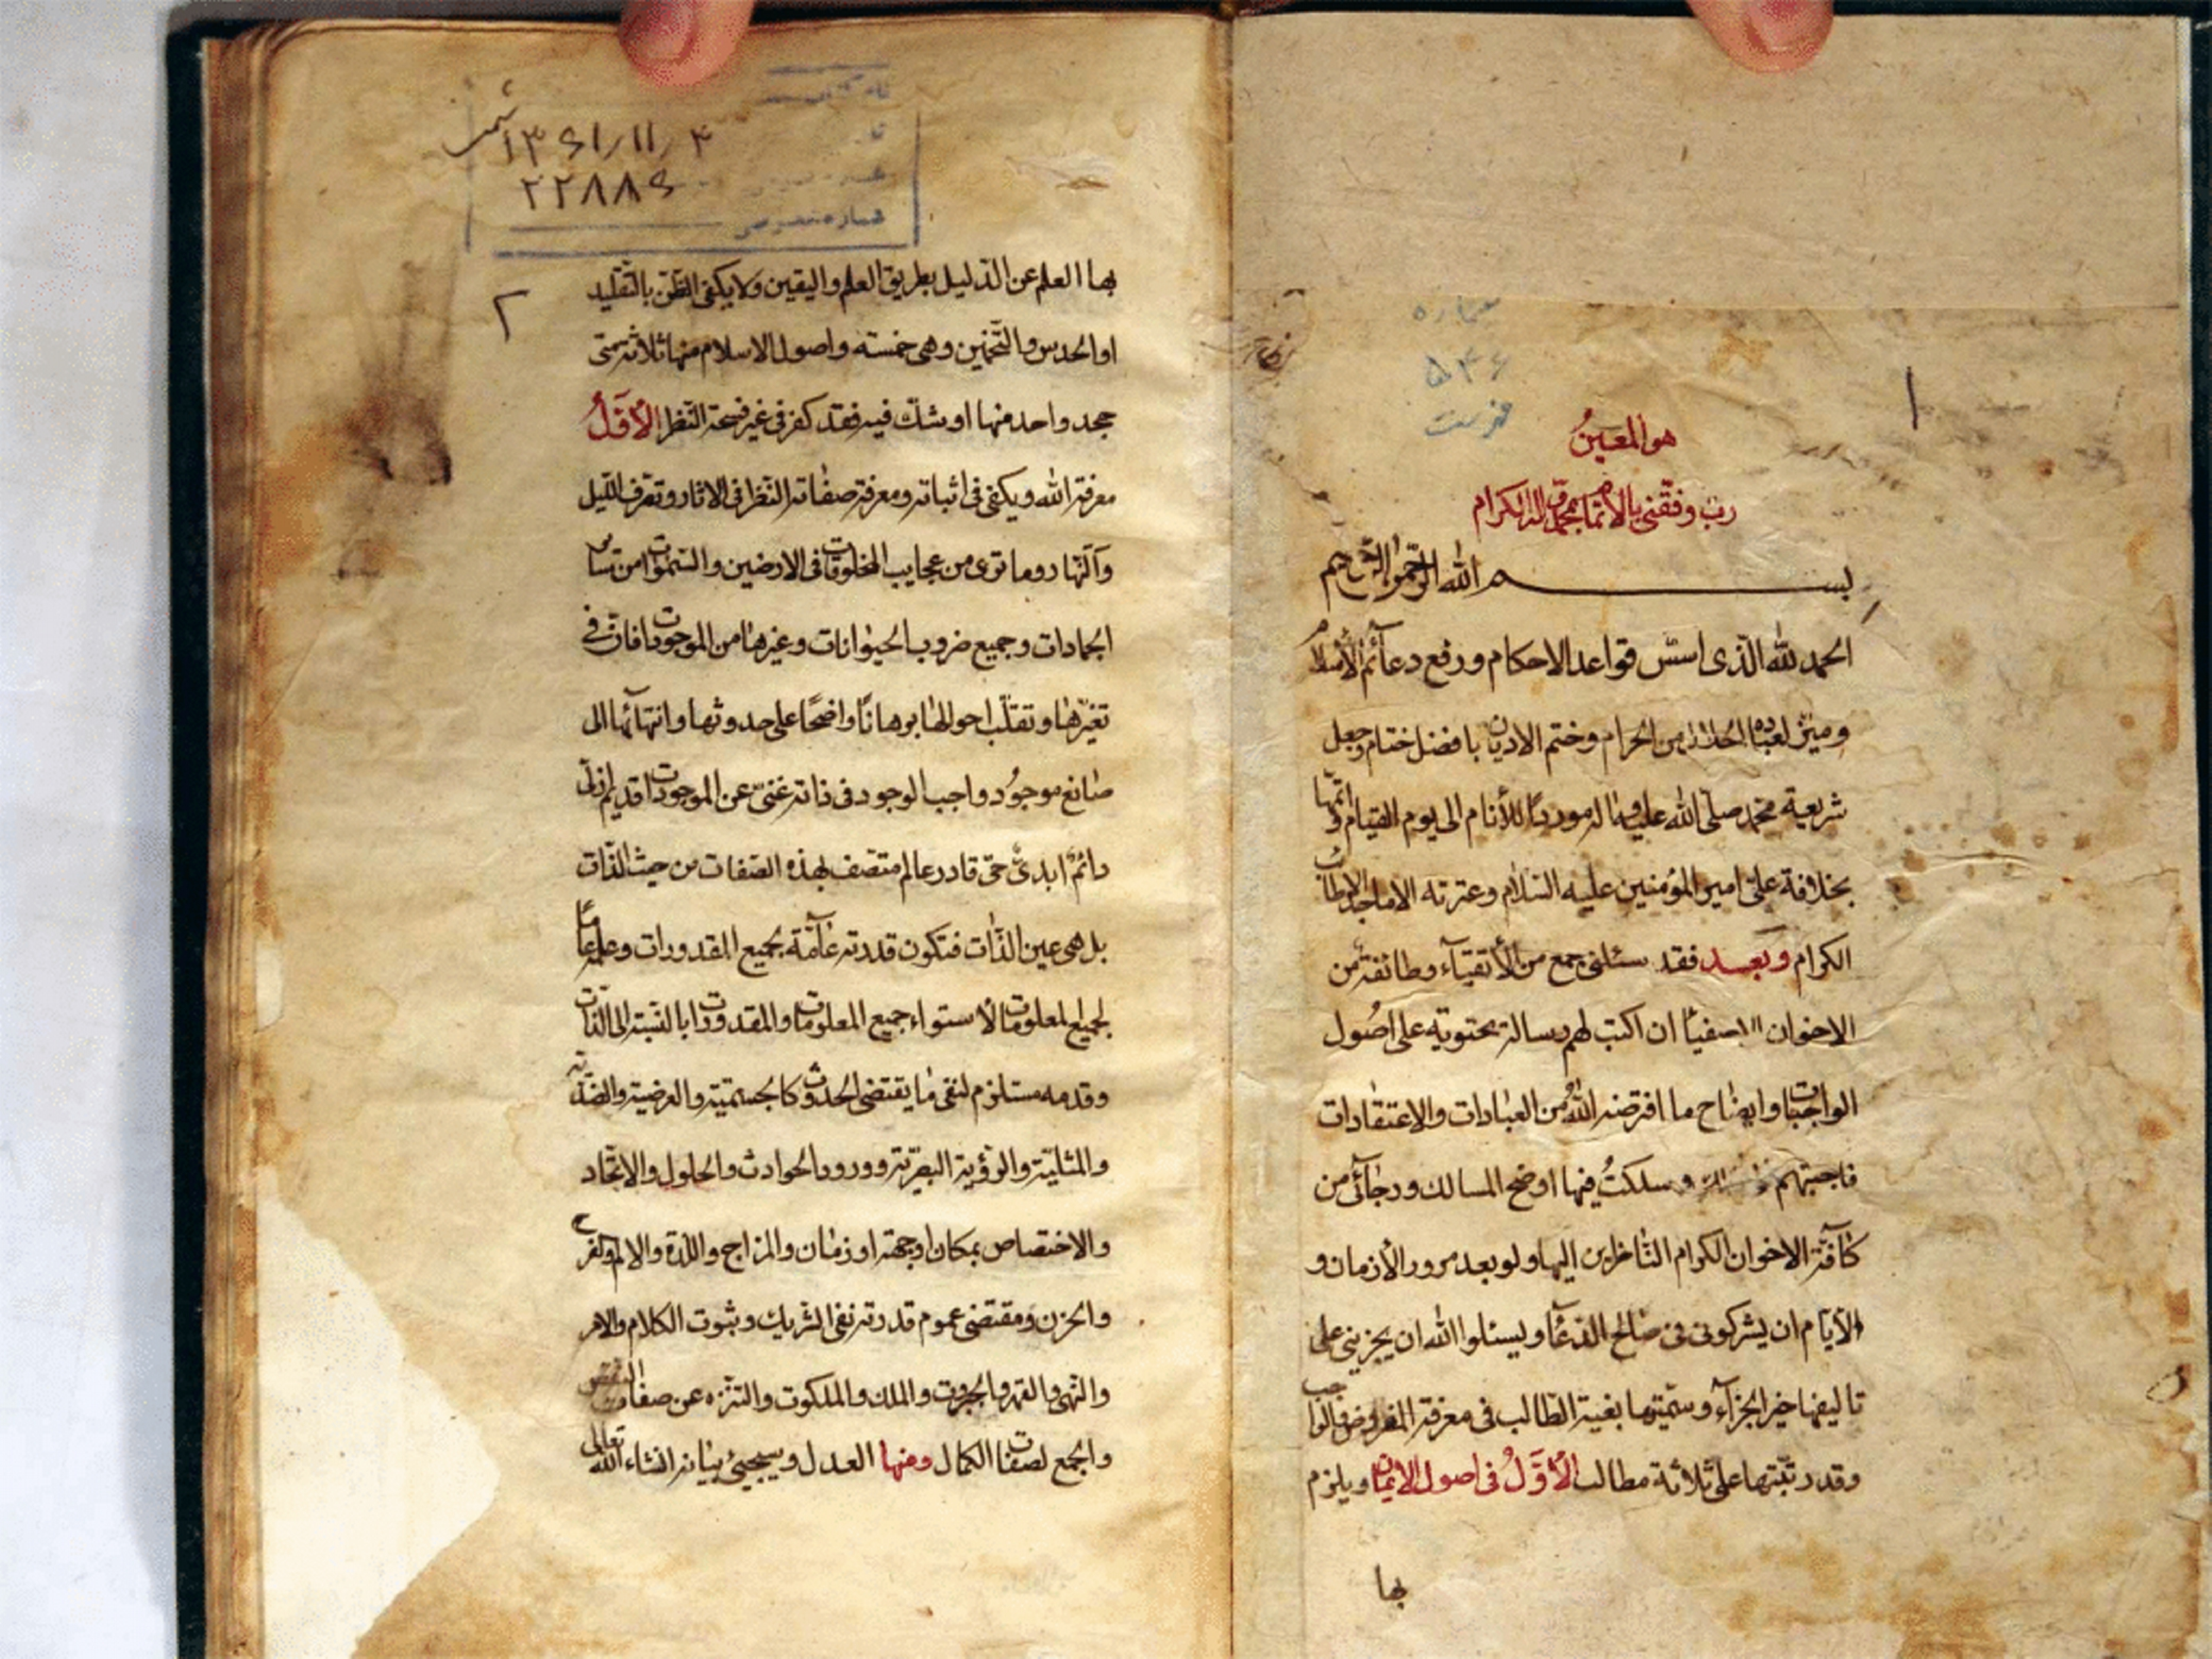 شماره
۵۴۶
فهرست
۱
هو المعین
رب وفقنی بالاتمام بمحمد واله الکرام
بسم الله الرحمن الرحیم
الحمد لله الذی اسّس قواعد الاحکام ورفع دعآئم الأسلام
ومیّز لعباده الحلال من الحرام وختم الادیان بافضل ختام وجعل
شریعة محمد صلی الله علیه واله موردًا للأنام الی یوم القیام واتمّها
بخلافة علیّ امیر المؤمنین علیه السّلام وعترته الاماجد الاطائب
الکرام وبعد فقد سئلنی جمع من الأتقیآء وطائفة من
الاخوان الاصفیآء ان اکتب لهم رسالة محتویه علی اصُول
الواجبات وایضاح ما افترضه اللّه من العبادات والاعتقادات
فاجبتهم وسلکتُ فیها اوضح المسالک ورجآئی من
کآفّة الاخوان الکرام النّاظرین الیها ولو بعد مرور الأزمان و
الأیّام ان یشرکونی فی صالح الدّعآء ویسئلوا الله ان یجزینی علی
تالیفها خیر الجزآء وسمّیتها بغیة الطّالب فی معرفة المفروض والواجب
وقد رتّبتها علی ثلاثة مطالب الأوّلُ فی اصول الایمان ویلزم
بها
شماره خصوصی
۱۳۶۱/۱۱/۴
۲۲۸۸۶
۲
بها العلم عن الدّلیل بطریق العلم والیقین ولا یکفی الظّن بالتّقلید
او الحدس والتّخمین وهی خمسة واصول الاسلام منها ثلاثة متی
جحد واحد منها او شکّ فیه فقد کفر فی غیر فسحة النّظر الأوّلُ
معرفة اللّه ویکفی فی اثباته ومعرفة صفاته النّظر فی الاثار وتعرّف اللّیل
وآلنّهار وما تری من عجایب المخلوقات فی الارضین والسّموات من سآئر
الجمادات وجمیع ضروب الحیوانات وغیرها من الموجودات فانّ فی
تغیّرها وتقلّب احوالها برهانًا واضحًا علی حدوثها وانتهآئها الی
صانع موجُود واجب الوجود فی ذاته غنیّ عن الموجودات قدیم ازلیّ
دائمٌ ابدیّ حیّ قادر عالم متّصف بهذه الصّفات من حیث الذّات
بل هی عین الذّات فتکون قدرته عآمّة بجمیع المقدورات وعلمه عامًّا
لجمیع المعلومات لأستواء جمیع المعلومات والمقدورات بالنّسبة الی الذّات
وقدمه مستلزم لنفی ما یقتضی الحدوث کالجسمّیة والعرضیة والضدّیّة
والمثلیّة والرّؤیة البصریّة وورود الحوادث والحلول والاتّحاد
والاختصاص بمکان او جهة او زمان والمزاج واللّذة والالم والفرح
والحزن ومقتضی عموم قدرته نفی الشّریک وثبوت الکلام والامر
والنّهی والقهر والجبروت والملک والملکوت والتنزّه عن صفات النّقص
والجمع لصفات الکمال ومنها العدل وسیجیئ بیانه انشاء اللّه تعالی